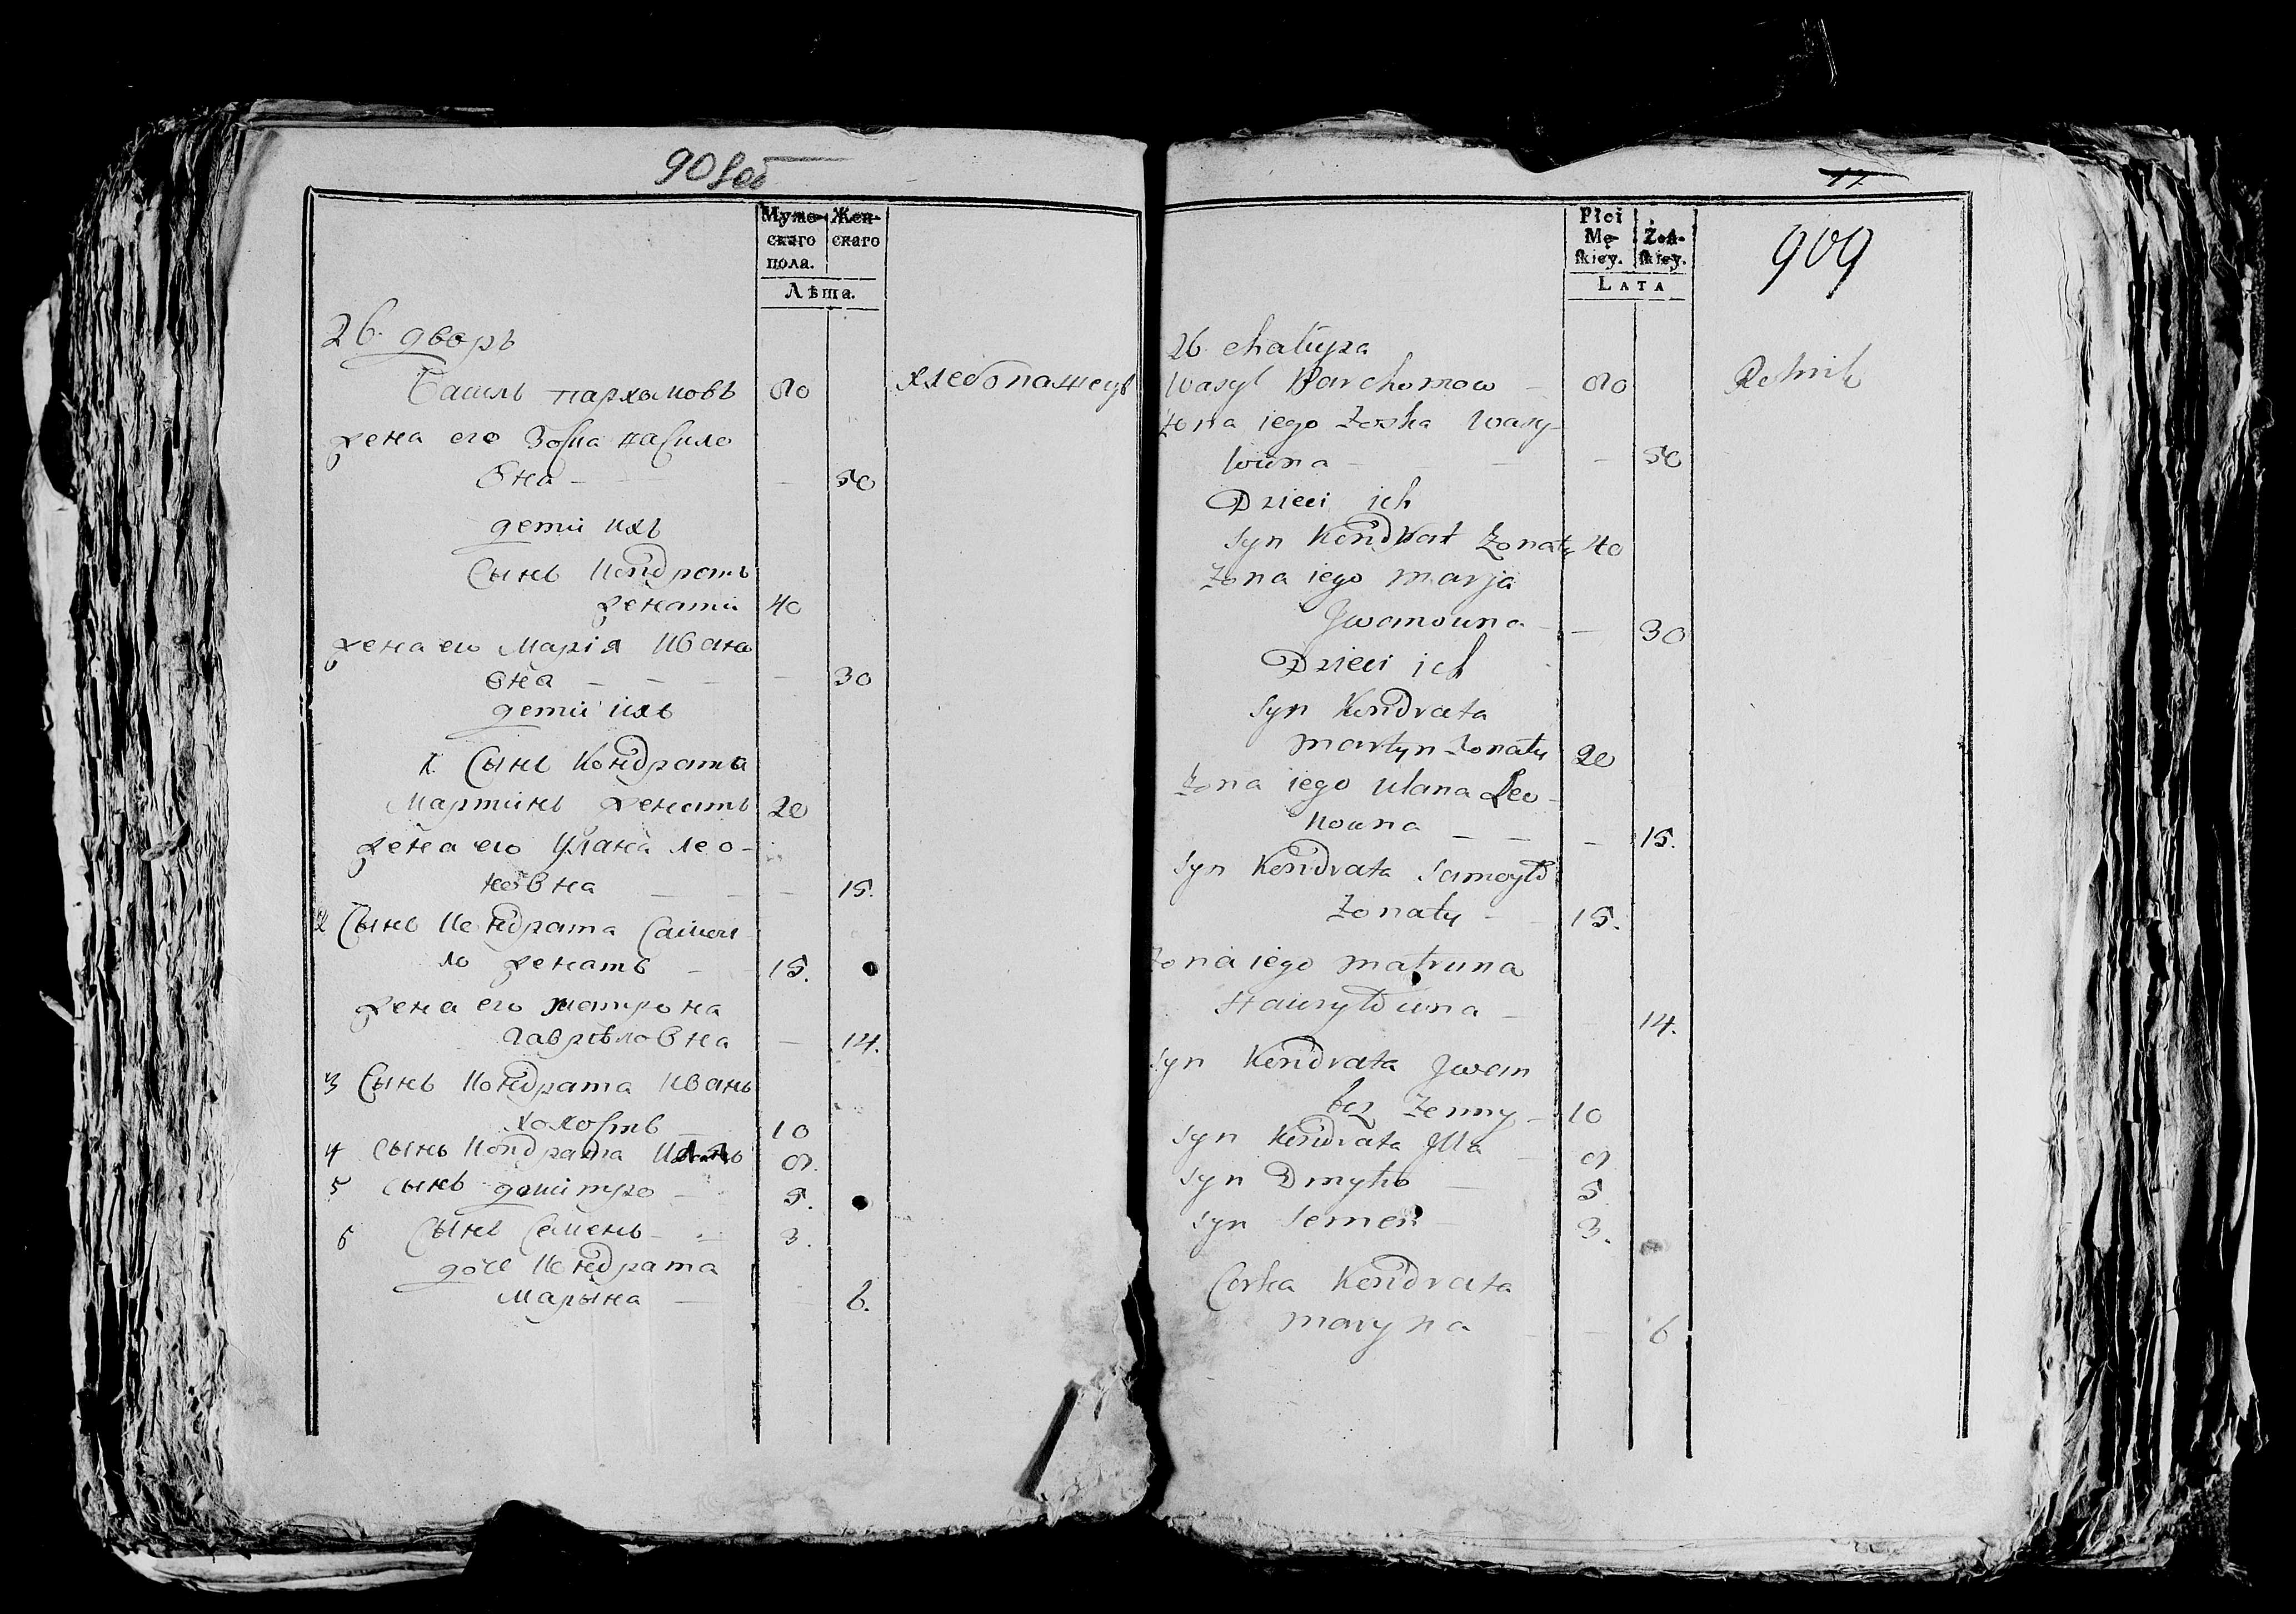 908об
Мужe- Жен-
скаго скаго
пола.
Лѣта.
26. дворъ
Василь Пархомовъ 80 хлебопашецъ
жена его Зоска Василе
вна - - 50
дети ихъ
Сынъ Кондратъ
женатй 40
жена его Марія Ивано
вна - - - - 30
дети ихъ
1. Сынъ Кондрата
Мартинъ женатъ 20
жена его Улана Лео-
новна - - - 15.
2 Сынъ Кондрата Самой
ло женатъ - 15.
жена его Матрона
Гавриловна - 14.
3 Сынъ Кондрата Иванъ
холостъ 10
4 Сынъ Кондрата 8.
5 Сынъ Дмитро - 5.
6 Сынъ Семенъ - - 3.
дочь Кондрата
Марына - - 6.
17
Płci
Mę- Żeń-
ſkiey. ſkiey.
LATA
909
26. chałupa
Wasyl Parchomow - 80 Rolnik
Żona iego Zoska Wasy-
lowna - - - 50
Dzieci ich
Syn Kondrat Żonaty 40
Żona iego Marja
Jwanowna - - 30
Dzieci ich
Syn Kondrata
Martyn Żonaty 20
Żona iego Ulana Leo-
nowna - - - 15.
Syn Kondrata Samoyło
Żonaty - - 15.
Żona iego Matruna
Hawryłowna - 14.
Syn Kondrata Jwan
bez Żenny - 10
Syn Kondrata Jlla - 8
Syn Dmytro - 5.
Syn Semen - 3.
Corka Kondrata
Maryna - - 6